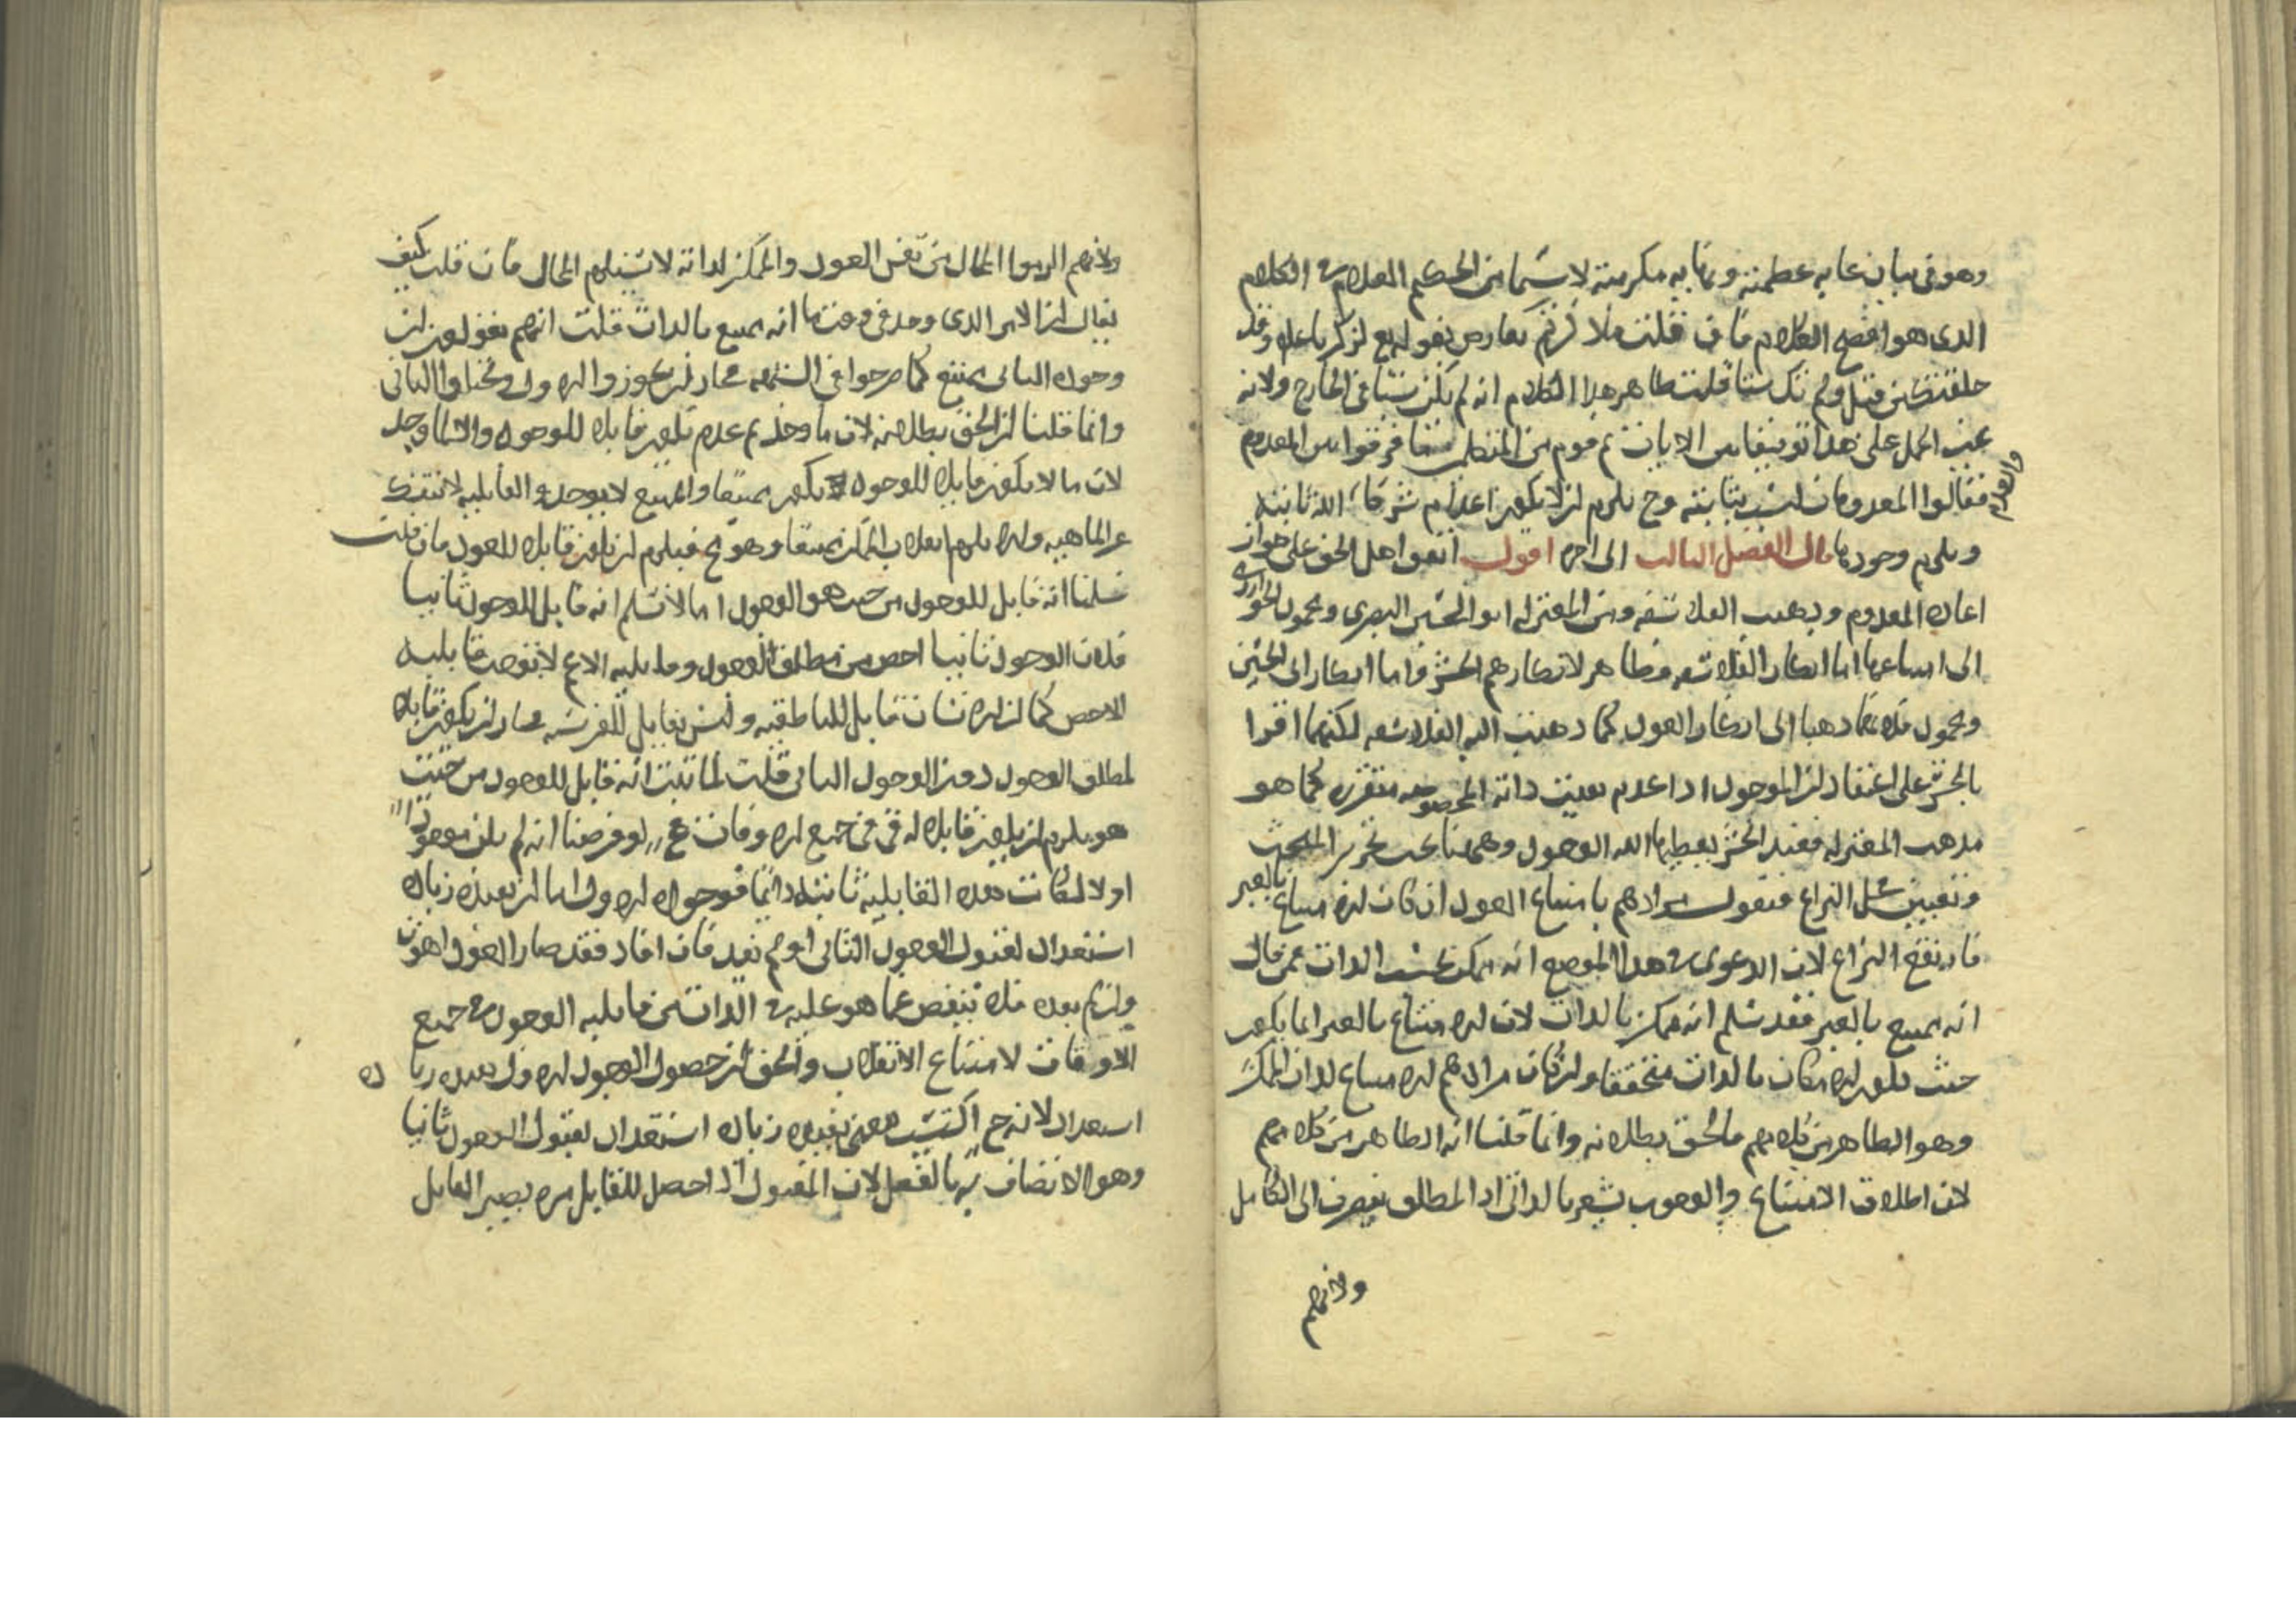 وهو في بيان غاية عظمته ونهاية مكرمته لا سيما من الحكيم العلام في الكلام
الذي هو افصح الكلام فان قلت ما ذكرتم معارض بقوله تع لزكريا عليه وقد
خلقتك من قبل ولم تك شيئا قلت ظاهر هذا الكلام انه لم يكن شيئا في الخارج ولانه
يجب الحمل على هذا توفيقا بين الايات ثم قوم من المتكلمين فرقوا بين المعدوم
والعدم
فقالوا المعدومات ليست بثابتة وح يلزم ان لا يكون اعدام الله ثابتة
ويلزم وجودها قال الفصل الثالث الى اخره اقول اتفق اهل الحق على جواز
اعادة المعدوم وذهبت الفلاسفة ومن المعتزلة ابو الحسين البصري ومحمود الخوارزمي
الى امتناعها اما انكار الفلاسفة فظاهر لانكارهم الحشر واما انكار ابي الحسين
ومحمود فلانهما ذهبا الى انكار العود كما ذهبت اليه الفلاسفة لكنهما اقرا
بالحشر على اعتقاد ان الموجود اذا عدم بقيت ذاته المخصوصة متقررة كما هو
مذهب المعتزلة فعند الحشر يعطيها الله الوجود وههنا يجب تحرير المبحث
وتعيين محل النزاع فنقول مرادهم بامتناع العود ان كان الامتناع بالغير
فارتفع النزاع لان الدعوى في هذا الموضع انه ممكن بحسب الذات فمن قال
انه يمتنع بالغير فقد سلم انه ممكن بالذات لان الامتناع بالغير انما يكون
حيث يكون الامكان بالذات متحققا وان كان مرادهم الامتناع لذات الممكن
وهو الظاهر من كلامهم فالحق بطلانه وانما قلنا انه الظاهر من كلامهم
لان اطلاق الامتناع والوجوب يشعر بالذاتي اذ المطلق ينصرف الى الكامل
ولانهم
ولانهم الزموا المحال من نفس العود والممكن لذاته لا يستلزم المحال فان قلت كيف
يقال ان الامر الذي وجد في وقت ما انه يمتنع بالذات قلت انهم يقولون ان
وجوده الثاني يمتنع كما صرحوا في فجاز ان يجوز الاول الثاني
وانما قلنا ان الحق بطلانه لان ما وجد ثم عدم يكون قابلا للوجود والا لما وجد
لان ما لا يكون قابلا للوجود يكون ممتنعا والممتنع لا يوجد والقابلية لا تنفك
عن الماهية والا يلزم انقلاب الممكن ممتنعا وهو مح فيلزم ان يكون قابلا للعود فان قلت
سلمنا انه قابل للوجود من حيث هو الوجود اما لا نسلم انه قابل للوجود ثانيا
فلان الوجود ثانيا اخص من مطلق الوجود وقابلية الاعم لا توجب قابلية
الاخص كما ان الانسان قابل للناطقية وليس بقابل للفرسية فجاز ان يكون قابلا
لمطلق الوجود دون الوجود الثاني قلت لما ثبت انه قابل للوجود من حيث
هو يلزم ان يكون قابلا له في جميع الاوقات لو فرضنا انه لم يكن موجودا
اولا لكانت هذه القابلية ثابتة دائما فوجوده الاول اما ان يفيده زيادة
استعداد لقبول الوجود الثاني او لم يفد فان افاد فقد صار العود اهون
وان لم يفده فلا ينقص عما هو عليه في الذات من قابلية الوجود في جميع
الاوقات لامتناع الانقلاب والحق ان حصول الوجود الاول يفيده زيادة
استعداد لانه ح اكتسب معنى يفيده زيادة استعداد لقبول الوجود ثانيا
وهو الاتصاف به بالفعل لان المقبول اذا حصل للقابل مرة يصير القابل